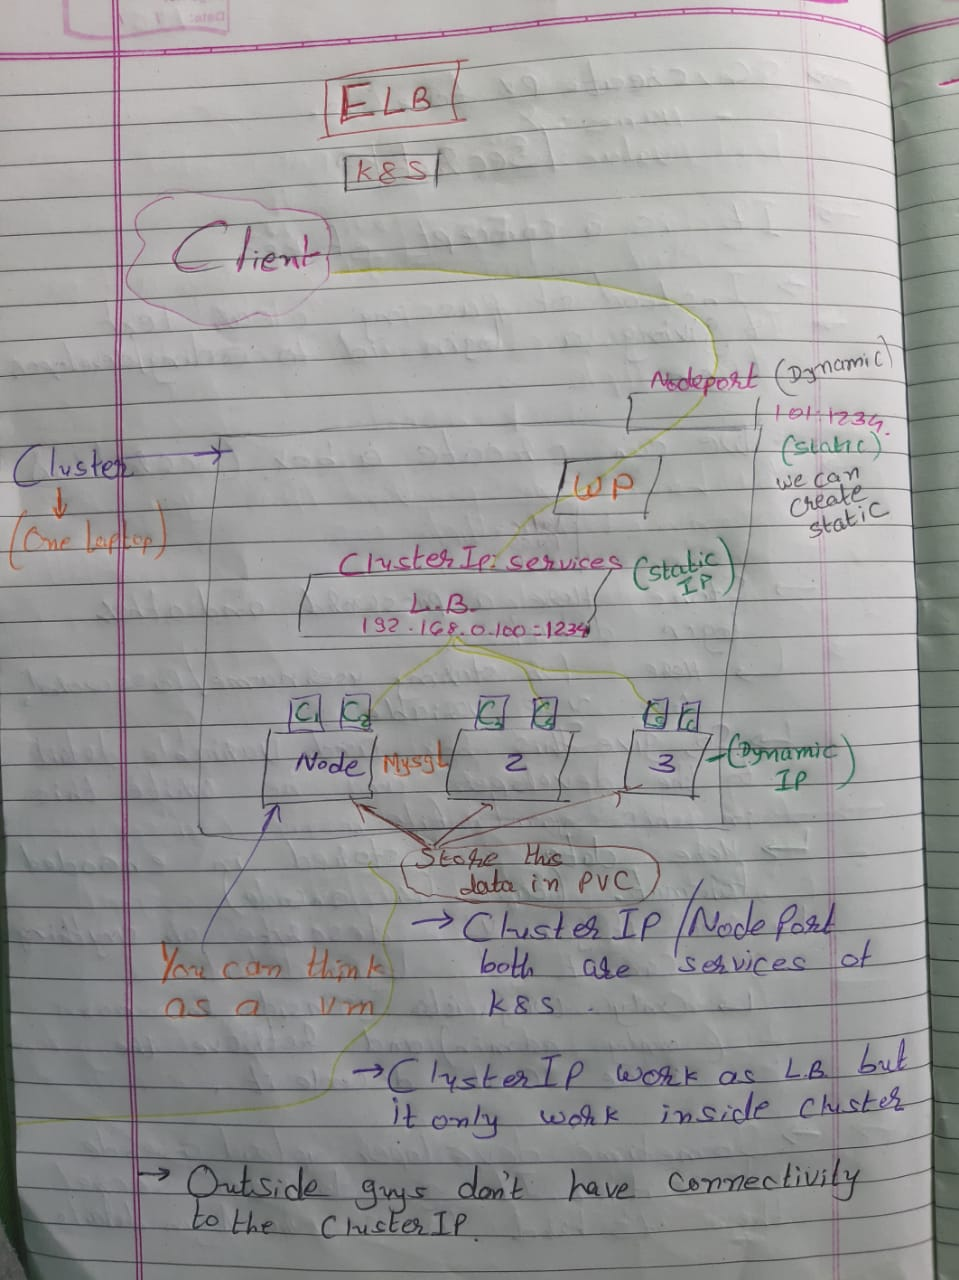 ELB
K8S
Client
Nodeport (Dynamic)
101.1234.
(static)
we can
create
static
Cluster
(One laptop)
WP
ClusterIp: services (static
IP)
L.B.
192.168.0.100=1234
C1 C2
Node Mysql 2 3 (Dynamic
IP)
Store this
data in PVC
→ Cluster IP / Node Port
both are services of
K8S.
You can think
as a vm
→ Cluster IP work as L.B but
it only work inside cluster
→ Outside guys don't have connectivity
to the Cluster IP.